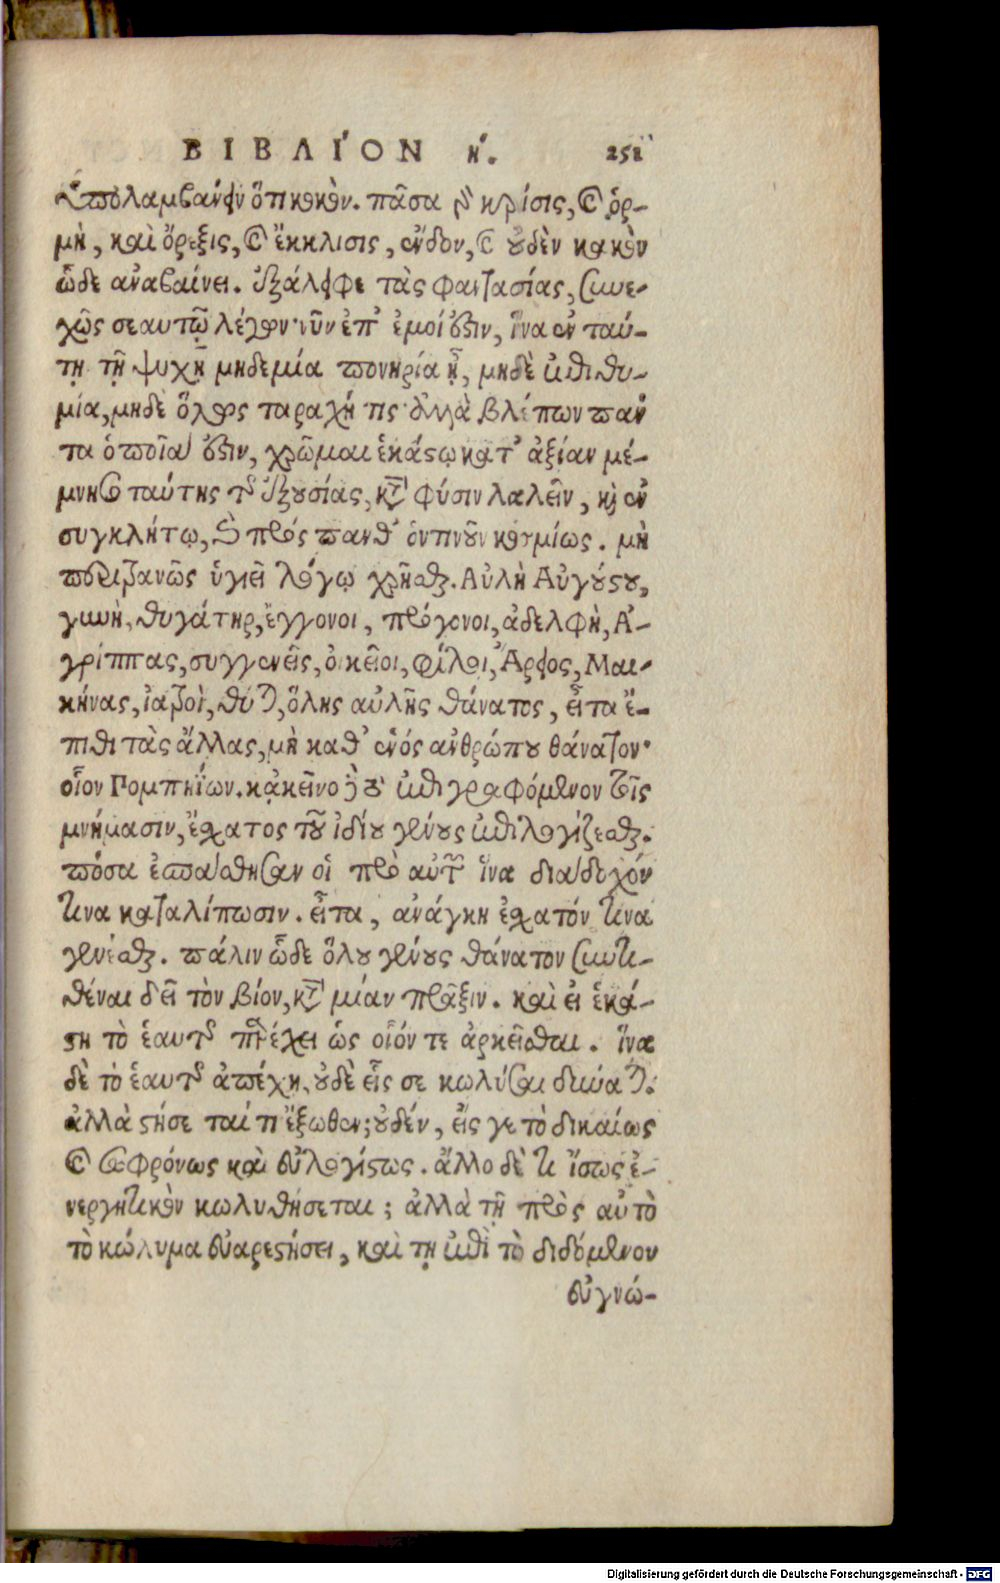 ΒΙΒΛΙ´ΟΝ η´. 251
ὑπολαμβάνειν ὅτι κακόν. πᾶσα γὸ κρίσις, καὶ ὁρ-
μὴ, καὶ ὄρεξις, καὶ ἔκκλισις, ἔνδον, καὶ οὐδὲν κακὸν
ὧδε ἀναβαίνει. ἐξάλειφε τὰς φαντασίας, συνε-
χῶς σεαυτῷ λέγων· νῦν ἐπ' ἐμοί ἐστιν, ἵνα ἐν ταύ-
τῃ τῇ ψυχῇ μηδεμία πονηρία ᾖ, μηδὲ ἐπιθυ-
μία, μηδὲ ὅλως ταραχή τις· ἀλλὰ βλέπων πάν
τα ὁποῖά ἐστιν, χρῶμαι ἑκάστῳ κατ' ἀξίαν μέ-
μνησο ταύτης τῆς ἐξουσίας, κατὰ φύσιν λαλεῖν, καὶ ἐν
συγκλήτῳ, καὶ πρός πανθ' ὁντινοῦν κοσμίως. μὴ
περιτρανῶς ὑγιεῖ λόγῳ χρῆσθαι. Αὐλὴ Αὐγούστου,
γυνὴ, θυγάτηρ, ἔγγονοι, πρόγονοι, ἀδελφὴ, Ἀ-
γρίππας, συγγενεῖς, οἰκεῖοι, φίλοι, Ἄρειος, Μαι-
κήνας, ἰατροὶ, θύται, ὅλης αὐλῆς θάνατος, εἶτα ἔ-
πιθι τὰς ἄλλας, μὴ καθ' ἑνός ἀνθρώπου θάνατον·
οἷον Πομπηΐων. κᾀκεῖνο δὲ τὸ ἐπιγραφόμενον τοῖς
μνήμασιν, ἔσχατος τοῦ ἰδίου γένους ἐπιλογίζεσθαι.
πόσα ἐσπάσθησαν οἱ πρὸ αὐτῶν ἵνα διάδοχόν
τινα καταλίπωσιν. εἶτα, ἀνάγκη ἔσχατόν τινα
γενέσθαι. πάλιν ὧδε ὅλου γένους θάνατον συντι-
θέναι δεῖ τὸν βίον, κατὰ μίαν πρᾶξιν. καὶ εἰ ἑκά-
στη τὸ ἑαυτῆς παρέχει ὡς οἷόν τε ἀρκεῖσθαι. ἵνα
δὲ τὸ ἑαυτῆς ἀπέχῃ, οὐδὲ εἷς σε κωλύσαι δύναται.
ἀλλὰ στήσεταί τι ἔξωθεν; οὐδέν, εἴς γε τὸ δικαίως
καὶ σωφρόνως καὶ εὐλογίστως. ἄλλο δὲ τι ἴσως ἐ-
νεργητικὸν κωλυθήσεται; ἀλλὰ τῇ πρὸς αὐτὸ
τὸ κώλυμα εὐαρεστήσει, καὶ τῃ ἐπὶ τὸ διδόμενον
εὐγνώ-
Digitalisierung gefördert durch die Deutsche Forschungsgemeinschaft - DFG